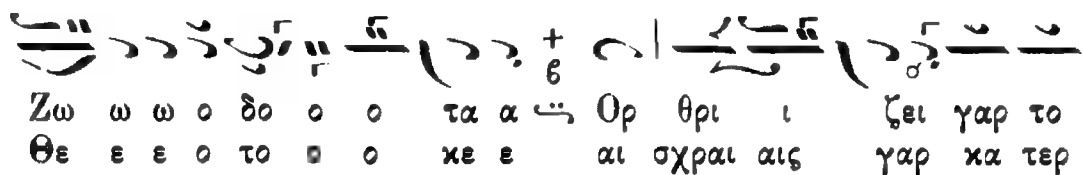 Ζω ω ω ο δο ο ο τα α Ορ θρι ι ζει γαρ το
Θε ε ε ο το ο κε ε αι σχραι αις γαρ κα τερ